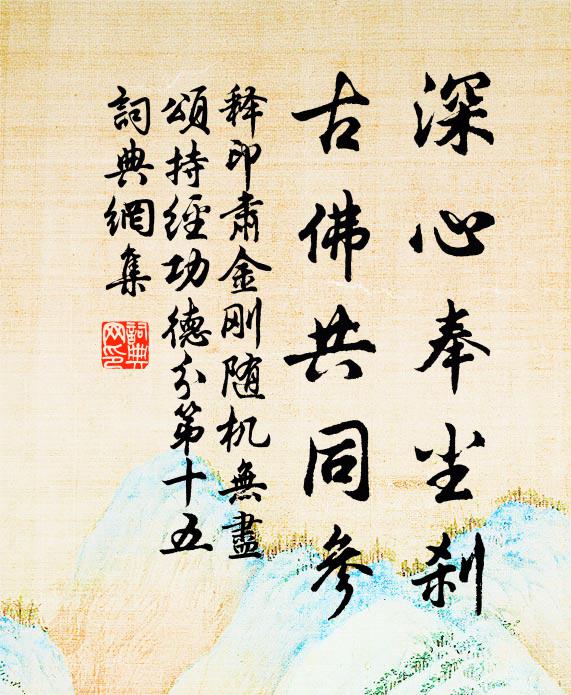 深心奉尘剎
古佛共同參
释印肃金刚随机無盡
頌持經功德分第十五
詞典網集
詞典
网印